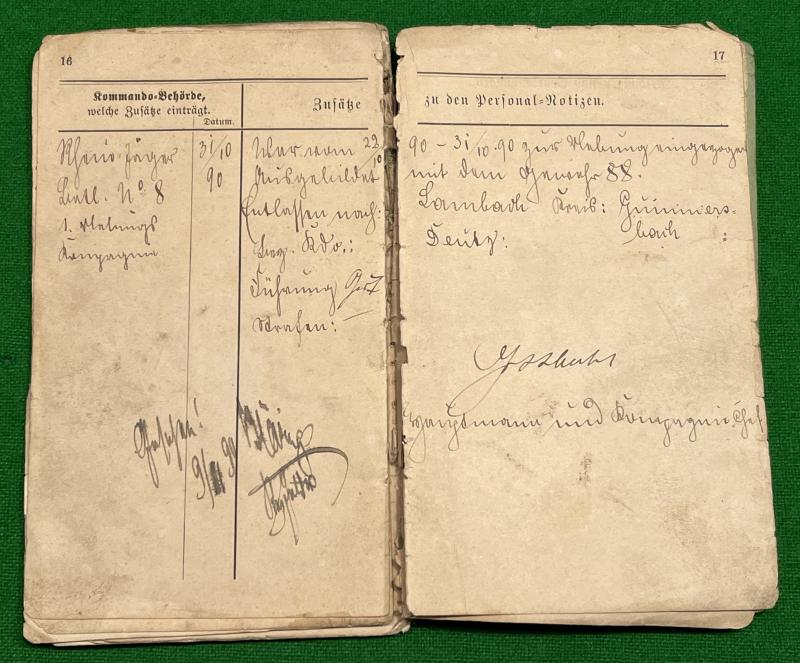 16
Kommando-Behörde,
welche Zusätze einträgt.
Datum.
Zusätze
Rhein. Jäger
Batl. No 8
1. Uebungs
Kompagnie
31/10
90
War vom 22/10
Ausgebildet
Entlassen nach:
Bez. Kdo.:
Führung Gut
Strafen: —
Gesehen!
9/11 90
17
zu den Personal-Notizen.
90 – 31/10. 90 zur Uebung eingezogen
mit dem Gewehr 88.
Lambach Kreis: Gummers-
bach :
Deutz:
Hauptmann und Kompagnie Chef